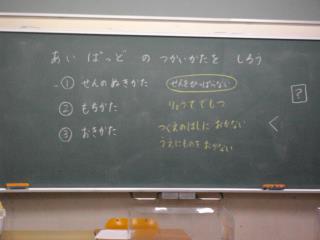 あいぱっどのつかいかたをしろう
① せんのぬきかた せんをひっぱらない
② もちかた りょうてでもつ
③ おきかた つくえのはしに おかない
うえにものを おかない
?